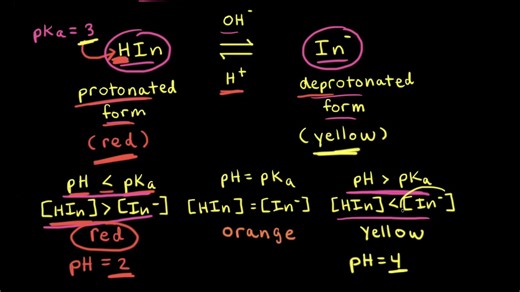 pKa = 3
OH⁻
HIn ⇌ In⁻
H⁺
protonated form
(red)
deprotonated form
(yellow)
pH < pKa
[HIn] > [In⁻]
red
pH = 2
pH = pKa
[HIn] = [In⁻]
orange
pH > pKa
[HIn] < [In⁻]
yellow
pH = 4